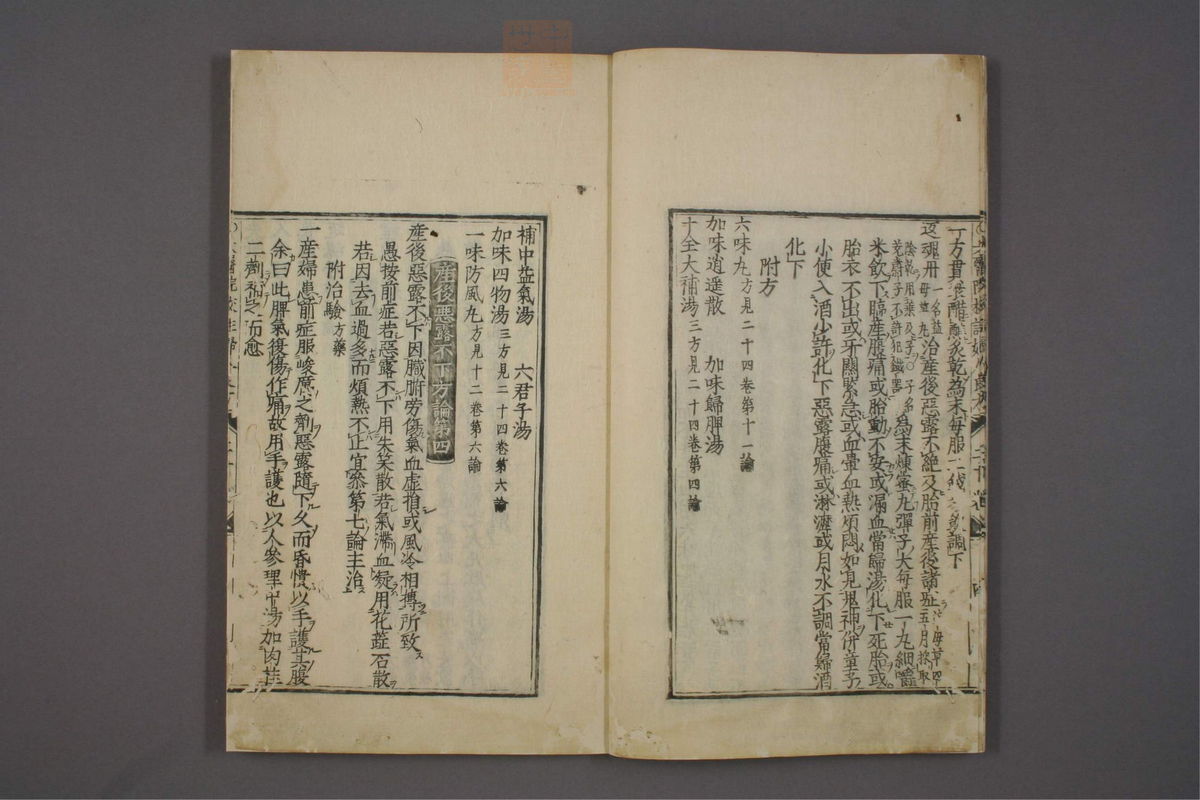 一方貫衆醋炙乾為末每服二錢調下
返魂丹 治產後惡露不絕及胎前產後諸
為末煉蜜丸彈子大每服一丸細嚼
米飲下臨産腹痛或胎動不安或漏血當歸湯化下死胎或
胎衣不出或牙關緊急或血暈血熱煩悶如見鬼神併童子
小便入酒少許化下惡露腹痛或淋瀝或月水不調當歸酒
化下
附方
六味丸方見二十四卷第十一論
加味逍遥散 加味歸脾湯
十全大補湯三方見二十四卷第四論
補中益氣湯 六君子湯
加味四物湯三方見二十四卷第六論
一味防風丸方見十二卷第六論
産後惡露不下方論第四
産後惡露不下因臓腑勞傷氣血虛損或風冷相搏所致
愚按前症若惡露不下用失笑散若氣滯血凝用花蕊石散
若因去血過多而煩熱不止宜叅第七論主治
附治驗方藥
一産婦患前症服峻厲之劑惡露隨下久而昏憒以手護其腹
余曰此脾氣復傷作痛故用手護也以人參理中湯加肉桂
二劑補之而愈